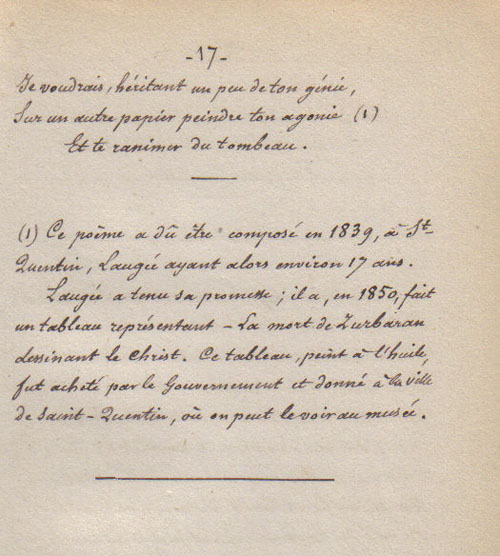 -17-
Je voudrais, héritant un peu de ton génie,
Sur un autre papier peindre ton agonie (1)
Et te ranimer du tombeau.
(1) Ce poème a dû être composé en 1839, à St-
Quentin, Laugée ayant alors environ 17 ans.
Laugée a tenu sa promesse ; il a, en 1850, fait
un tableau représentant - La mort de Zurbaran
dessinant le Christ. Ce tableau, peint à l'huile,
fut acheté par le Gouvernement et donné à la ville
de Saint-Quentin, où on peut le voir au musée.